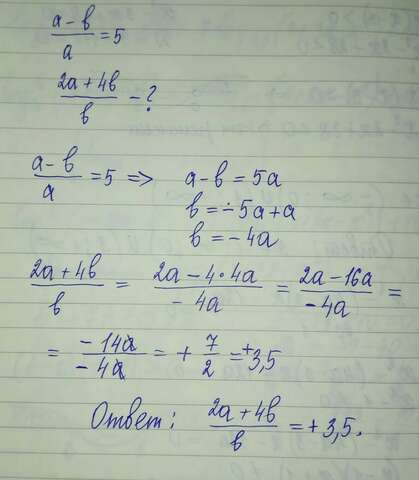 (a-b)/a = 5
(2a+4b)/b - ?
(a-b)/a = 5 => a-b = 5a
b = -5a+a
b = -4a
(2a+4b)/b = (2a-4·4a)/(-4a) = (2a-16a)/(-4a) =
= (-14a)/(-4a) = + 7/2 = +3,5
Ответ: (2a+4b)/b = +3,5.